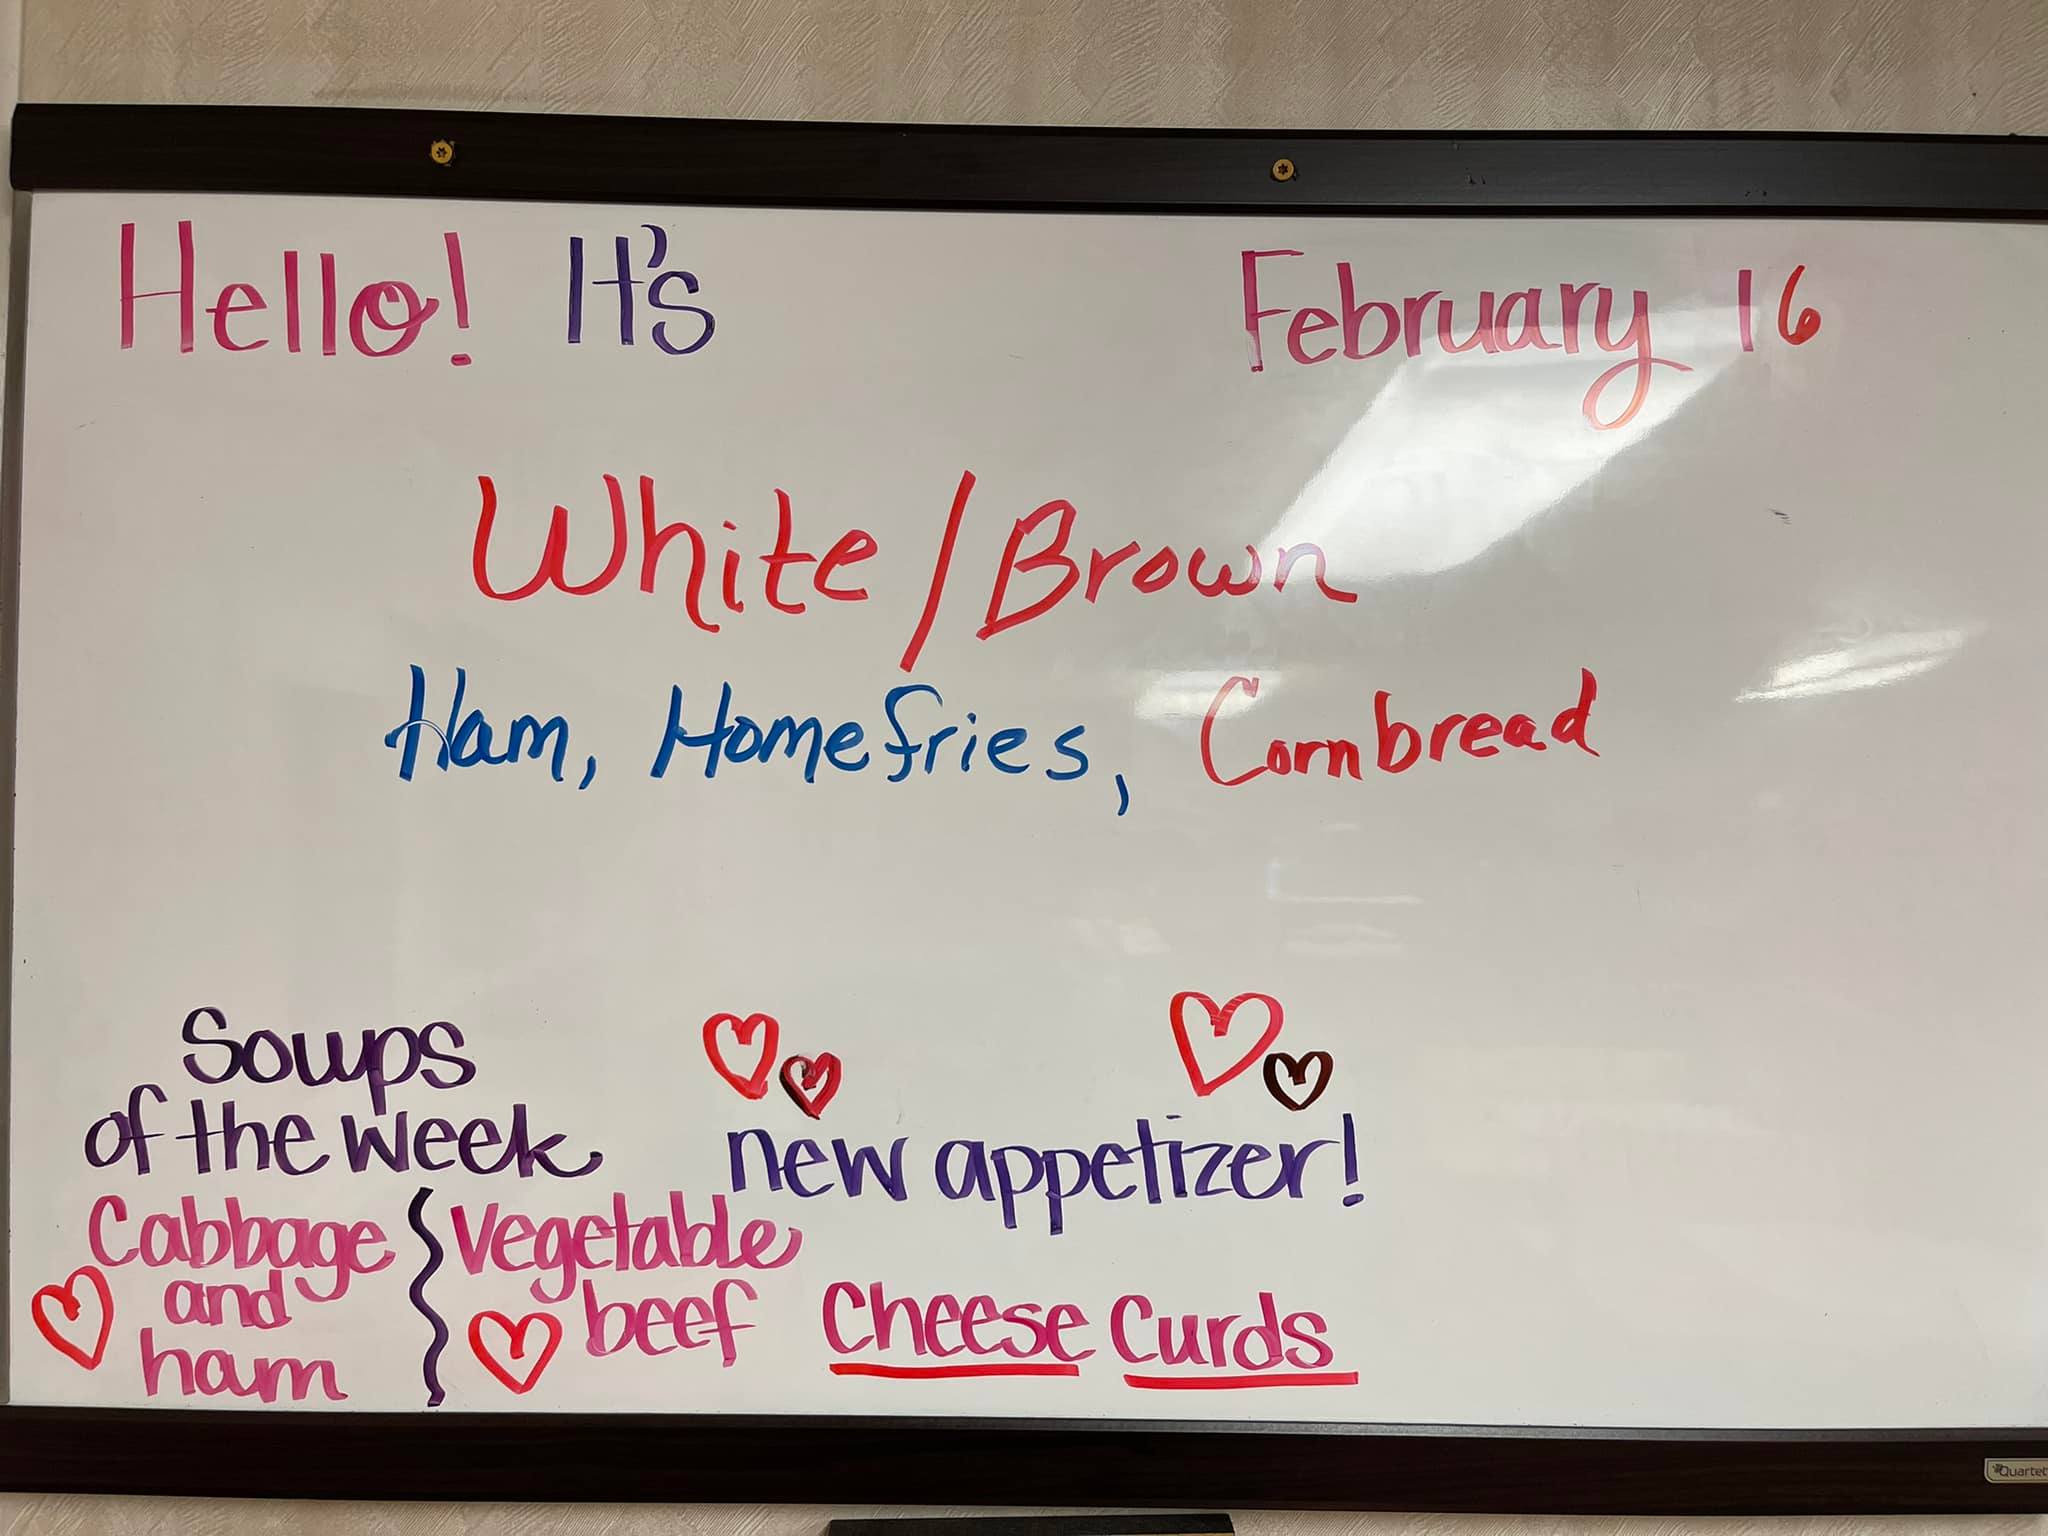 Hello! It's February 16
White/Brown
Ham, Homefries, Cornbread
Soups
of the week
Cabbage
and
ham
Vegetable
beef
new appetizer!
Cheese Curds
Quartet